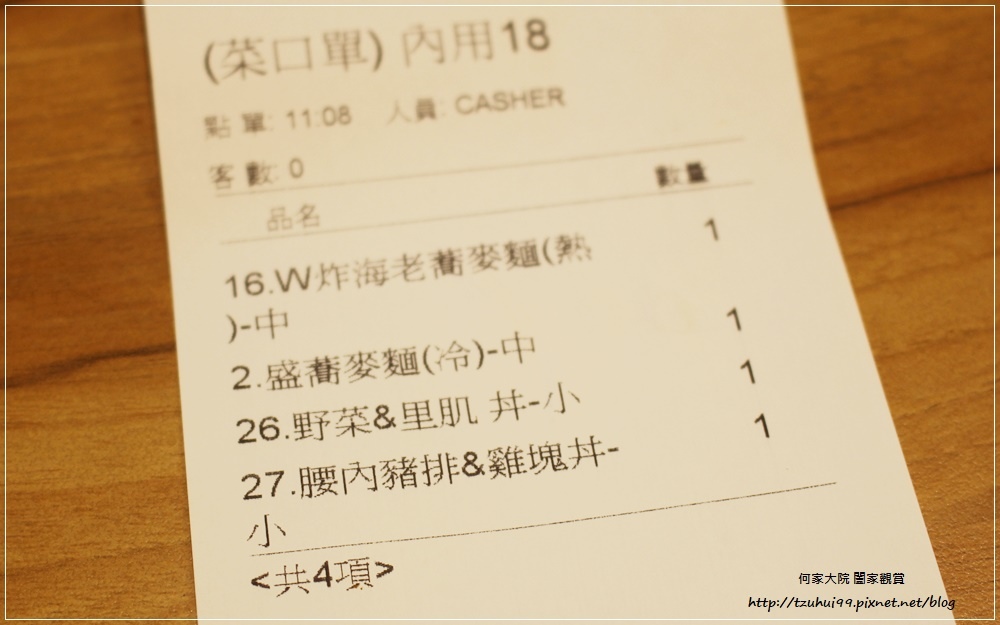 (菜口單) 內用18
點 單: 11:08 人員: CASHER
客 數: 0
品名 數量
16.W炸海老蕎麥麵(熱 1
)-中
2.盛蕎麥麵(冷)-中 1
26.野菜&里肌 丼-小 1
27.腰內豬排&雞塊丼- 1
小
<共4項>
何家大院 闔家觀賞
http://tzuhui99.pixnet.net/blog